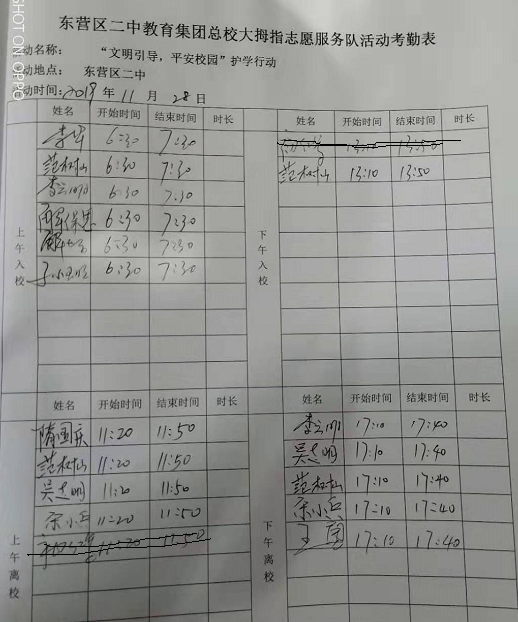 SHOT ON OPPO
东营区二中教育集团总校大拇指志愿服务队活动考勤表
动名称： “文明引导，平安校园”护学行动
动地点： 东营区二中
动时间：2019年 11 月 28 日
上午入校
姓名 开始时间 结束时间 时长
李华 6:30 7:30
范树山 6:30 7:30
李云明 6:30 7:30
6:30 7:30
6:30 7:30
6:30 7:30
下午入校
姓名 开始时间 结束时间 时长
13:10 13:50
范树山 13:10 13:50
上午离校
姓名 开始时间 结束时间 时长
隋国庆 11:20 11:50
范树山 11:20 11:50
吴志明 11:20 11:50
宋小兵 11:20 11:50
11:20 11:50
下午离校
姓名 开始时间 结束时间 时长
李云明 17:10 17:40
吴志明 17:10 17:40
范树山 17:10 17:40
宋小兵 17:10 17:40
王 17:10 17:40